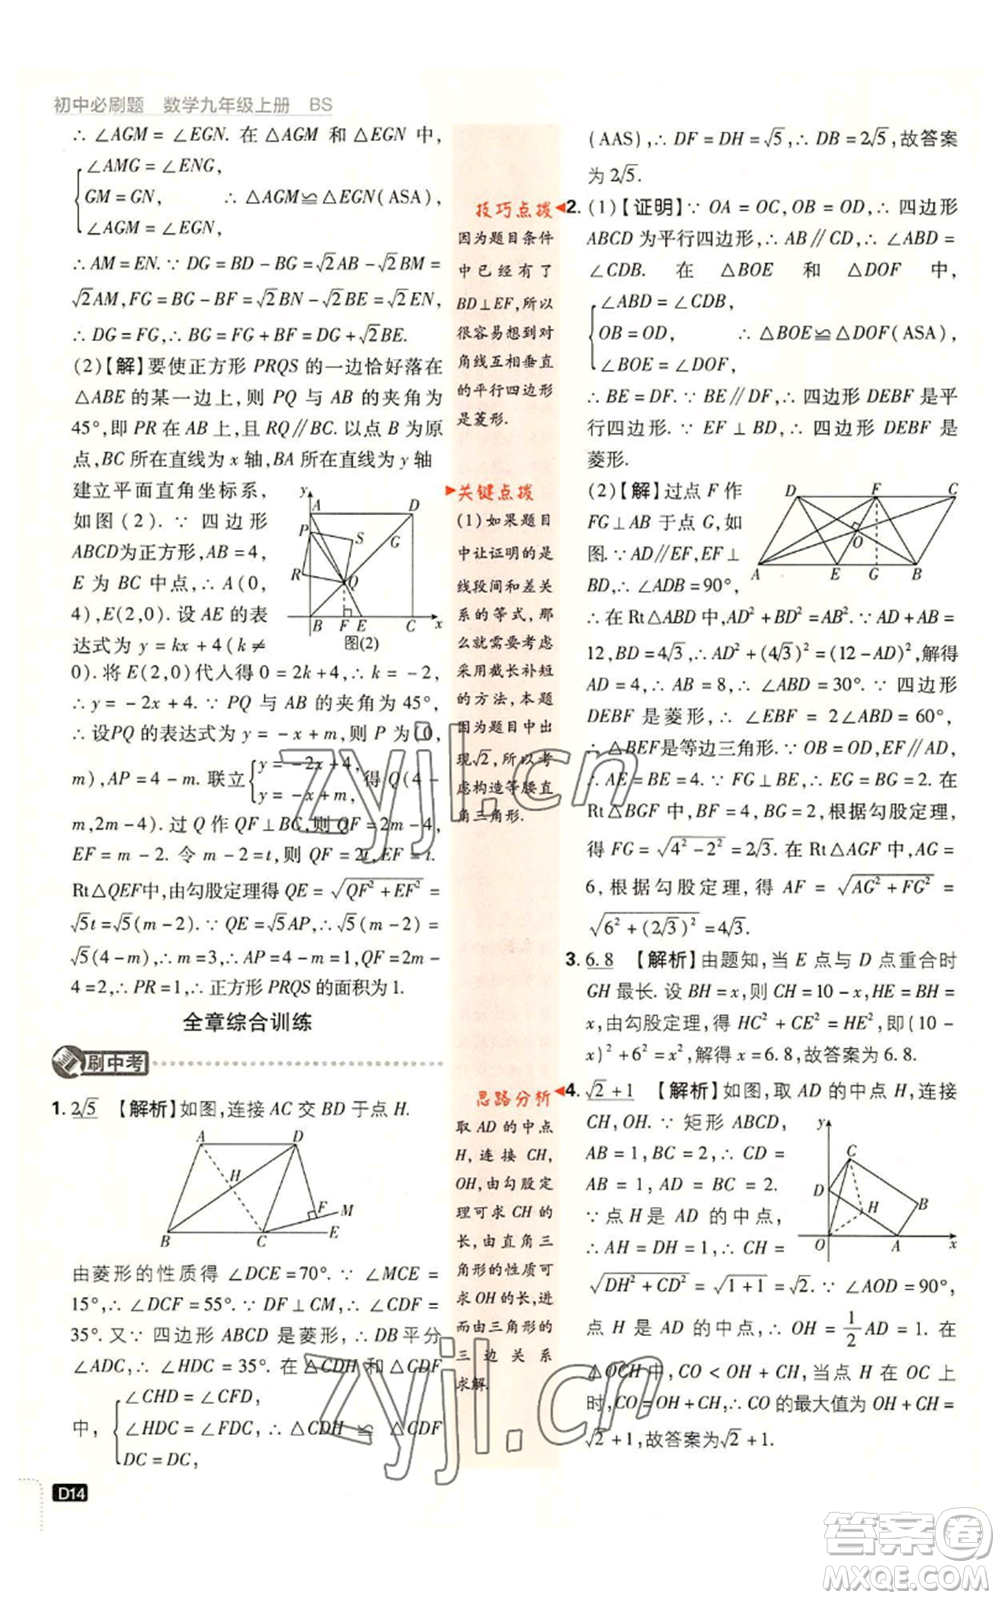 初中必刷题 数学九年级上册 BS
∴ ∠AGM = ∠EGN. 在 △AGM 和 △EGN 中,
∠AMG = ∠ENG,
GM = GN, ∴ △AGM≌△EGN(ASA),
∠AGM = ∠EGN,
∴ AM = EN. ∵ DG = BD - BG = √2AB - √2BM =
√2AM, FG = BG - BF = √2BN - √2BE = √2EN,
∴ DG = FG, ∴ BG = FG + BF = DG + √2BE.
(2)【解】要使正方形 PRQS 的一边恰好落在
△ABE 的某一边上,则 PQ 与 AB 的夹角为
45°,即 PR 在 AB 上,且 RQ∥BC. 以点 B 为原
点,BC 所在直线为 x 轴,BA 所在直线为 y 轴
建立平面直角坐标系,
如图(2). ∵ 四边形
ABCD为正方形,AB = 4,
E 为 BC 中点,∴ A(0,
4),E(2,0). 设 AE 的表
达式为 y = kx + 4(k ≠
0). 将 E(2,0)代入得 0 = 2k + 4,∴ k = -2,
∴ y = -2x + 4. ∵ PQ 与 AB 的夹角为 45°,
∴ 设PQ 的表达式为 y = -x + m,则 P 为(0,
m),AP = 4 - m. 联立 y = -2x + 4, 得 Q(4 -
y = -x + m,
m,2m - 4). 过 Q 作 QF⊥BC,则 QF = 2m - 4,
EF = m - 2. 令 m - 2 = t,则 QF = 2t,EF = t.
Rt△QEF中,由勾股定理得 QE = √QF² + EF² =
√5t = √5(m - 2). ∵ QE = √5AP,∴ √5(4 - m) =
√5(m - 2),∴ m = 3,∴ AP = 1,∴ PQ = √2(4 -
m) = √2,∴ PR = 1,∴ 正方形 PRQS 的面积为 1.
y
A
D
P
S
G
R
Q
B
F
E
C
x
图(2)
全章综合训练
刷中考
1. 2√5 【解析】如图,连接 AC 交 BD 于点 H.
A
D
H
F
M
B
C
E
由菱形的性质得 ∠DCE = 70°. ∵ ∠MCE =
15°,∴ ∠DCF = 55°. ∵ DF⊥CM,∴ ∠CDF =
35°. 又∵ 四边形 ABCD 是菱形,∴ DB平分
∠ADC,∴ ∠HDC = 35°. 在 △CDH 和 △CDF
∠CHD = ∠CFD,
中, ∠HDC = ∠FDC, ∴ △CDH ≌ △CDF
DC = DC,
D14
技巧点拨
因为题目条件
中已经有了
BD⊥EF,所以
很容易想到对
角线互相垂直
的平行四边形
是菱形.
关键点拨
(1)如果题目
中让证明的是
线段间和差关
系的等式,那
么就需要考虑
采用截长补短
的方法,本题
因为题目中出
现√2,所以考
虑构造等腰直
角三角形.
思路分析
取 AD 的中点
H,连接 CH,
OH,由勾股定
理可求CH的
长,由直角三
角形的性质可
求OH的长,进
而由三角形的
三边关系
求解.
(AAS),∴ DF = DH = √5,∴ DB = 2√5,故答案
为 2√5.
2. (1)【证明】∵ OA = OC,OB = OD,∴ 四边形
ABCD 为平行四边形,∴ AB∥CD,∴ ∠ABD =
∠CDB. 在 △BOE 和 △DOF 中,
∠ABD = ∠CDB,
OB = OD, ∴ △BOE≌△DOF(ASA),
∠BOE = ∠DOF,
∴ BE = DF. ∵ BE∥DF,∴ 四边形 DEBF 是平
行四边形. ∵ EF⊥BD,∴ 四边形 DEBF 是
菱形.
(2)【解】过点 F 作
FG⊥AB 于点 G,如
图. ∵ AD∥EF,EF⊥
BD,∴ ∠ADB = 90°,
∴ 在 Rt△ABD 中,AD² + BD² = AB². ∵ AD + AB =
12,BD = 4√3,∴ AD² + (4√3)² = (12 - AD)²,解得
AD = 4,∴ AB = 8,∴ ∠ABD = 30°. ∵ 四边形
DEBF 是菱形,∴ ∠EBF = 2∠ABD = 60°,
∴ △BEF是等边三角形. ∵ OA = OC,AD∥EF,
∴ AE = BE = 4. ∵ FG⊥BE,∴ EG = BG = 2. 在
Rt△BGF 中,BF = 4,BG = 2,根据勾股定理,
得 FG = √4² - 2² = 2√3. 在 Rt△AGF 中,AG =
6,根据勾股定理,得 AF = √AG² + FG² =
√6² + (2√3)² = 4√3.
D
F
C
O
A
E
G
B
3. 6.8 【解析】由题知,当 E 点与 D 点重合时
GH 最长. 设 BH = x,则 CH = 10 - x,HE =
BH = x,由勾股定理,得 HC² + CE² = HE²,即(10 -
x)² + 6² = x²,解得 x = 6.8,故答案为 6.8.
4. √2 + 1 【解析】如图,取 AD 的中点 H,连接
CH,OH. ∵ 矩形 ABCD,
AB = 1,BC = 2,∴ CD =
AB = 1,AD = BC = 2.
∵ 点 H 是 AD 的中点,
∴ AH = DH = 1,∴ CH =
√DH² + CD² = √1 + 1 = √2. ∵ ∠AOD = 90°,
点 H 是 AD 的中点,∴ OH = 1/2 AD = 1. 在
△OCH 中,CO < OH + CH,当点 H 在 OC 上
时,CO = OH + CH,∴ CO 的最大值为 OH + CH =
√2 + 1,故答案为√2 + 1.
y
C
D
B
H
O
A
x
zyjl.cn
zyjl.cn
答案圈
MXQE.COM